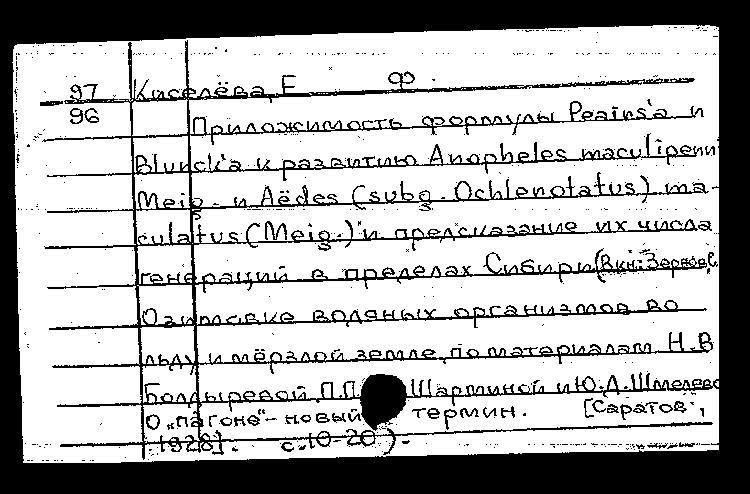 97 Киселёва, Е Ф.
96 Приложимость формулы Peairs'a и
Blunck'a к развитию Anopheles maculipenni
Meig. и Aëdes (subg. Ochlenotatus) ma-
culatus (Meig.) и предсказание их числа
генераций в пределах Сибири (В кн.: Зернов, С.
Озимовке водяных организмов во
льду и мёрзлой земле, по материалам Н. В
Болдыревой, П. П Шарминой и Ю. Д. Шмелево
О „пагоне“ - новый термин. [Саратов,
1928]. с. 10-20).